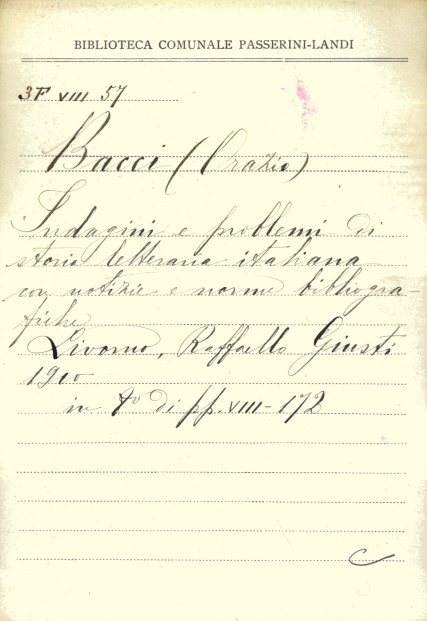 BIBLIOTECA COMUNALE PASSERINI-LANDI
3F VIII 57
Bacci (Orazio)
Indagini e problemi di
storia letteraria italiana
con notizie e norme bibliogra-
fiche
Livorno, Raffaello Giusti
1910
in 8º di pp. VIII-172
C